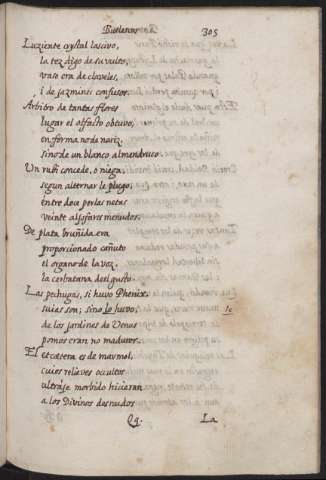 Burlescas 305
Luziente crystal lascivo,
la tez digo de su vulto,
vaso era de claveles,
i de jazmines confusos.
Arbitro de tantas flores
lugar el olfacto obtuvo,
en forma no de nariz,
sino de un blanco almendruco.
Un rubi concede, o niega,
segun alternar le plugo,
entre doce perlas netas
veinte aljofares menudos.
De plata bruñida era
proporcionado cañuto
el organo de la voz,
la cerbatana del gusto.
Las pechugas, si huvo Phenix,
suias son; si no lo huvo,
de los jardines de Venus
pomos eran no maduros.
El etcetera es de marmol,
cuios relieves occultos
ultraje morbido hicieran
a los Divinos desnudos
Qq. La